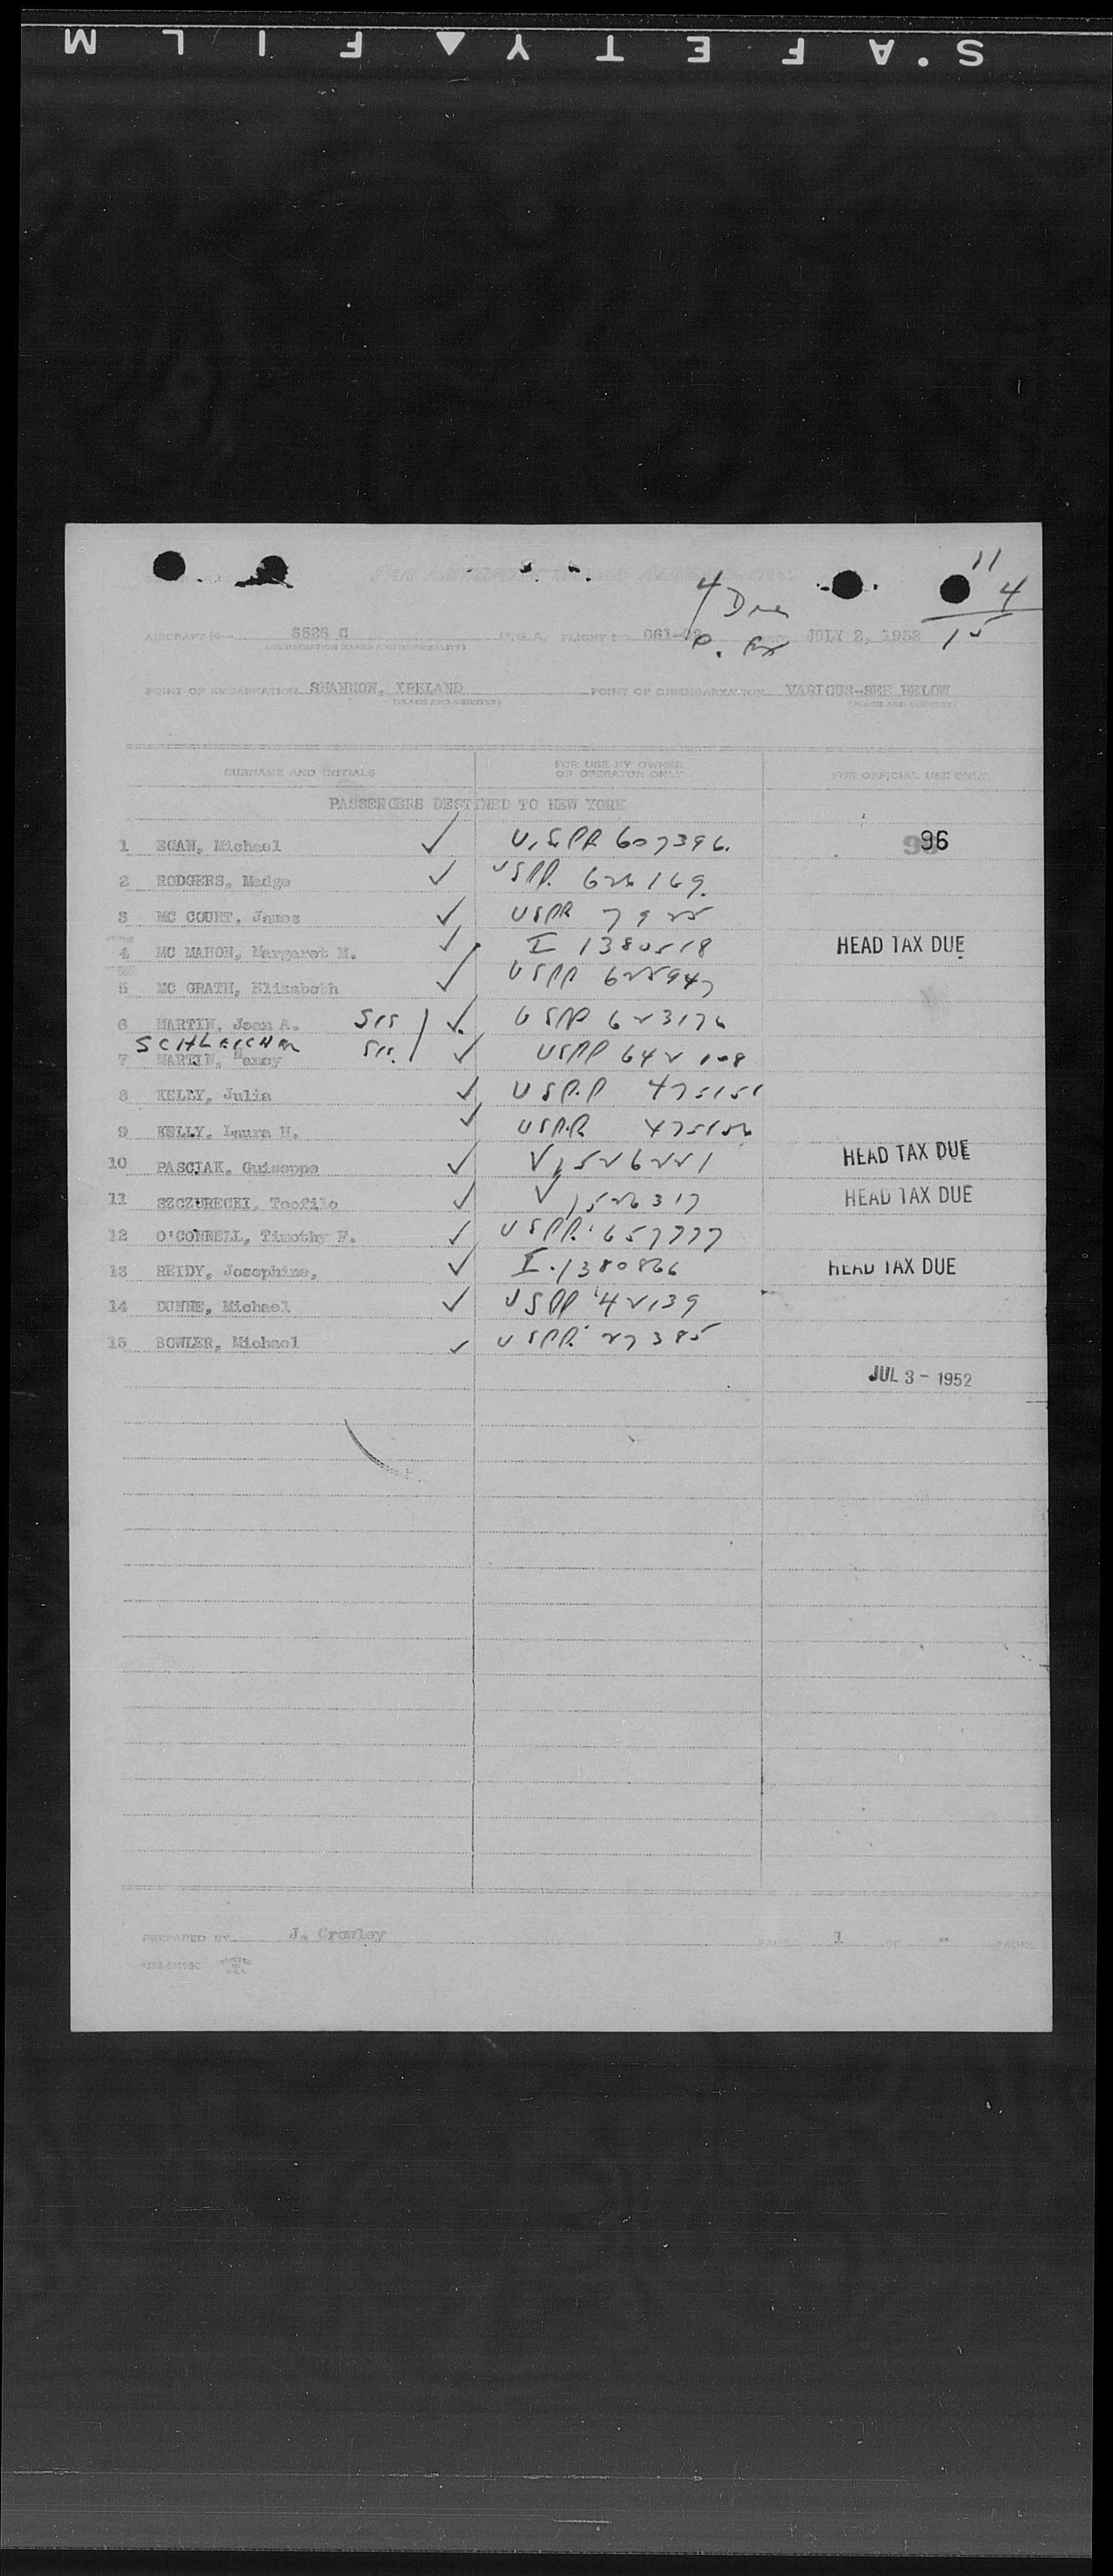 S.AFETY▲FILM
11
4 Due
4
15
AIRCRAFT N— 6526 C U.S.A. FLIGHT NO. 061-02 DATE JULY 2, 1952
(REGISTRATION MARKS AND NATIONALITY)
POINT OF EMBARKATION SHANNON, IRELAND POINT OF DISEMBARKATION VARIOUS-SEE BELOW
(PLACE AND COUNTRY) (PLACE AND COUNTRY)
SURNAME AND INITIALS FOR USE BY OWNER OR OPERATOR ONLY FOR OFFICIAL USE ONLY
PASSENGERS DESTINED TO NEW YORK
1 EGAN, Michael ✓ U.S.PP. 607396. 96
2 RODGERS, Madge ✓ USPP. 626169.
3 MC COURT, James ✓ USPP 7925
4 MC MAHON, Margaret M. ✓ I 1380518 HEAD TAX DUE
5 MC GRATH, Elizabeth ✓ USPP 622947
6 MARTIN, Jean A. SIS ✓ USPP 623176
SCHLEICHER
7 MARTIN, Nancy SIS. ✓ USPP 642108
8 KELLY, Julia ✓ USP.P 475151
9 KELLY, Laura H. ✓ USP.P. 475152
10 PASCIAK, Guiseppe ✓ V1526221 HEAD TAX DUE
11 SZCZURECKI, Teofilo ✓ V1526317 HEAD TAX DUE
12 O'CONNELL, Timothy F. ✓ USPP. 657777
13 REIDY, Josephine, ✓ I.1380866 HEAD TAX DUE
14 DUNNE, Michael ✓ USPP 42139
15 BOWLER, Michael ✓ USPP. 27385
JUL 3 - 1952
PREPARED BY J. Crowley PAGE 1 OF " PAGES